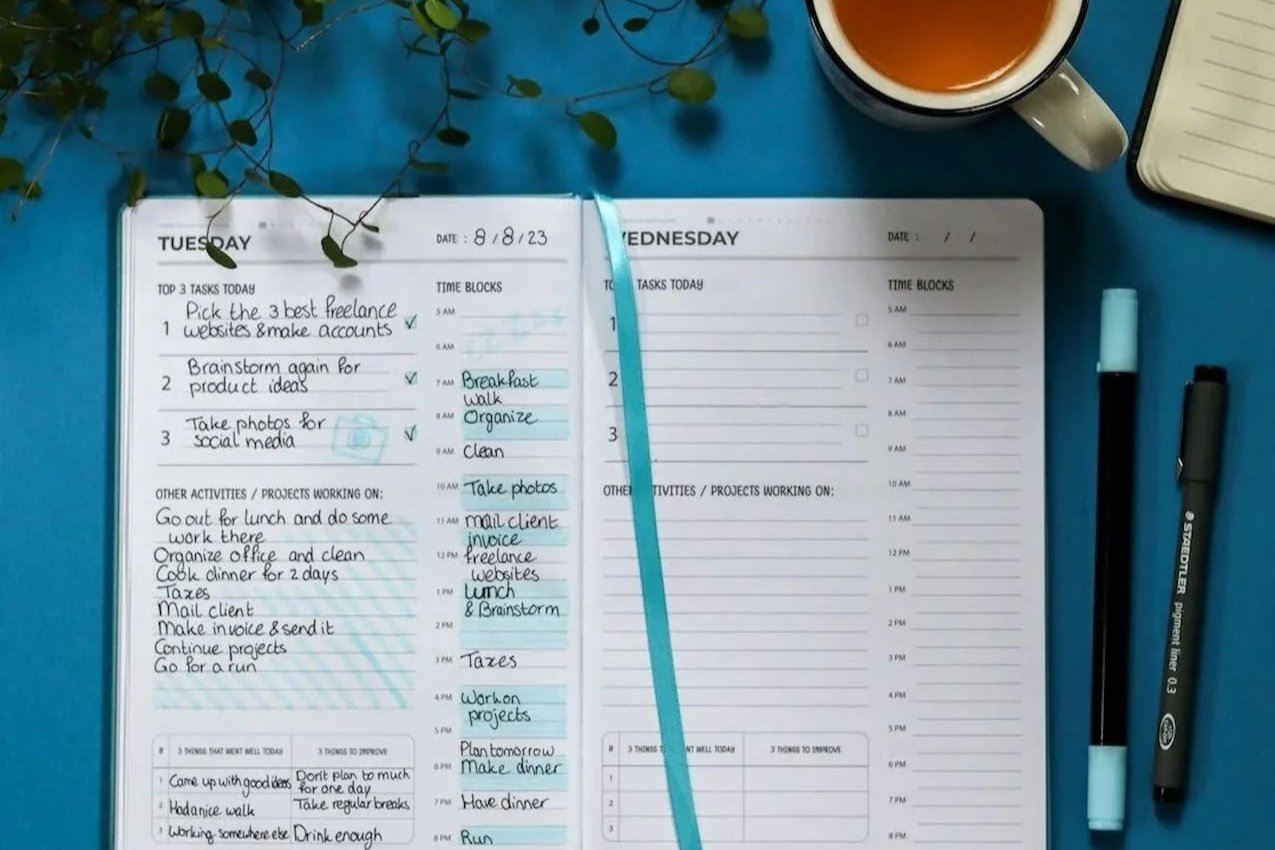 TUESDAY
DATE : 8/8/23
TOP 3 TASKS TODAY
1 Pick the 3 best freelance
websites & make accounts
2 Brainstorm again for
product ideas
3 Take photos for
social media
OTHER ACTIVITIES / PROJECTS WORKING ON:
Go out for lunch and do some
work there
Organize office and clean
Cook dinner for 2 days
Taxes
Mail client
Make invoice & send it
Continue projects
Go for a run
# 3 THINGS THAT WENT WELL TODAY 3 THINGS TO IMPROVE
1 Came up with good ideas Don't plan to much
for one day
2 Had a nice walk Take regular breaks
3 Working somewhere else Drink enough
TIME BLOCKS
5 AM
6 AM
7 AM Breakfast
walk
8 AM Organize
9 AM Clean
10 AM Take photos
11 AM mail client
invoice
12 PM freelance
websites
1 PM Lunch
& Brainstorm
2 PM
3 PM Taxes
4 PM Work on
projects
5 PM
Plan tomorrow
6 PM Make dinner
7 PM Have dinner
8 PM Run
EDNESDAY
DATE : / /
TO TASKS TODAY
1
2
3
OTHE TIVITIES / PROJECTS WORKING ON:
# 3 THINGS T NT WELL TODAY 3 THINGS TO IMPROVE
1
2
3
TIME BLOCKS
5 AM
6 AM
7 AM
8 AM
9 AM
10 AM
11 AM
12 PM
1 PM
2 PM
3 PM
4 PM
5 PM
6 PM
7 PM
8 PM
STAEDTLER pigment liner 0.3